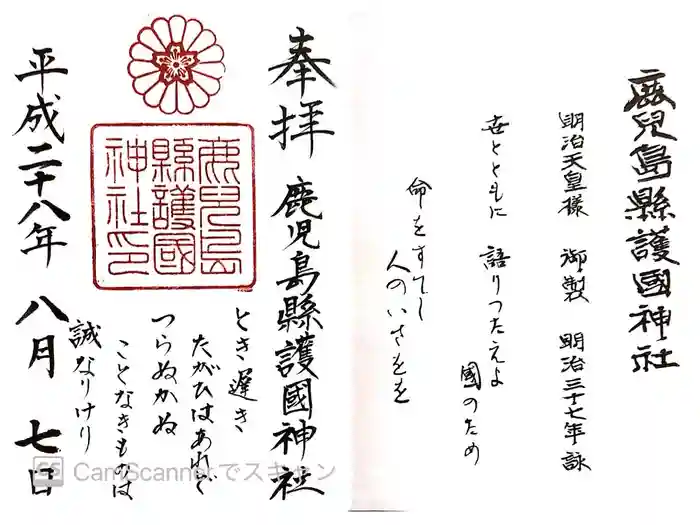 鹿兒島縣護國神社
明治天皇様 御製 明治三十七年詠
世とともに 語りつたえよ
國のため
命をすてし
人のいさをを
奉拝 鹿兒島縣護國神社
鹿兒島
縣護國
神社印
とき遅き
たがひはあれど
つらぬかぬ
ことなきものは
誠なりけり
平成二十八年 八月 七日
CS CamScannerでスキャン